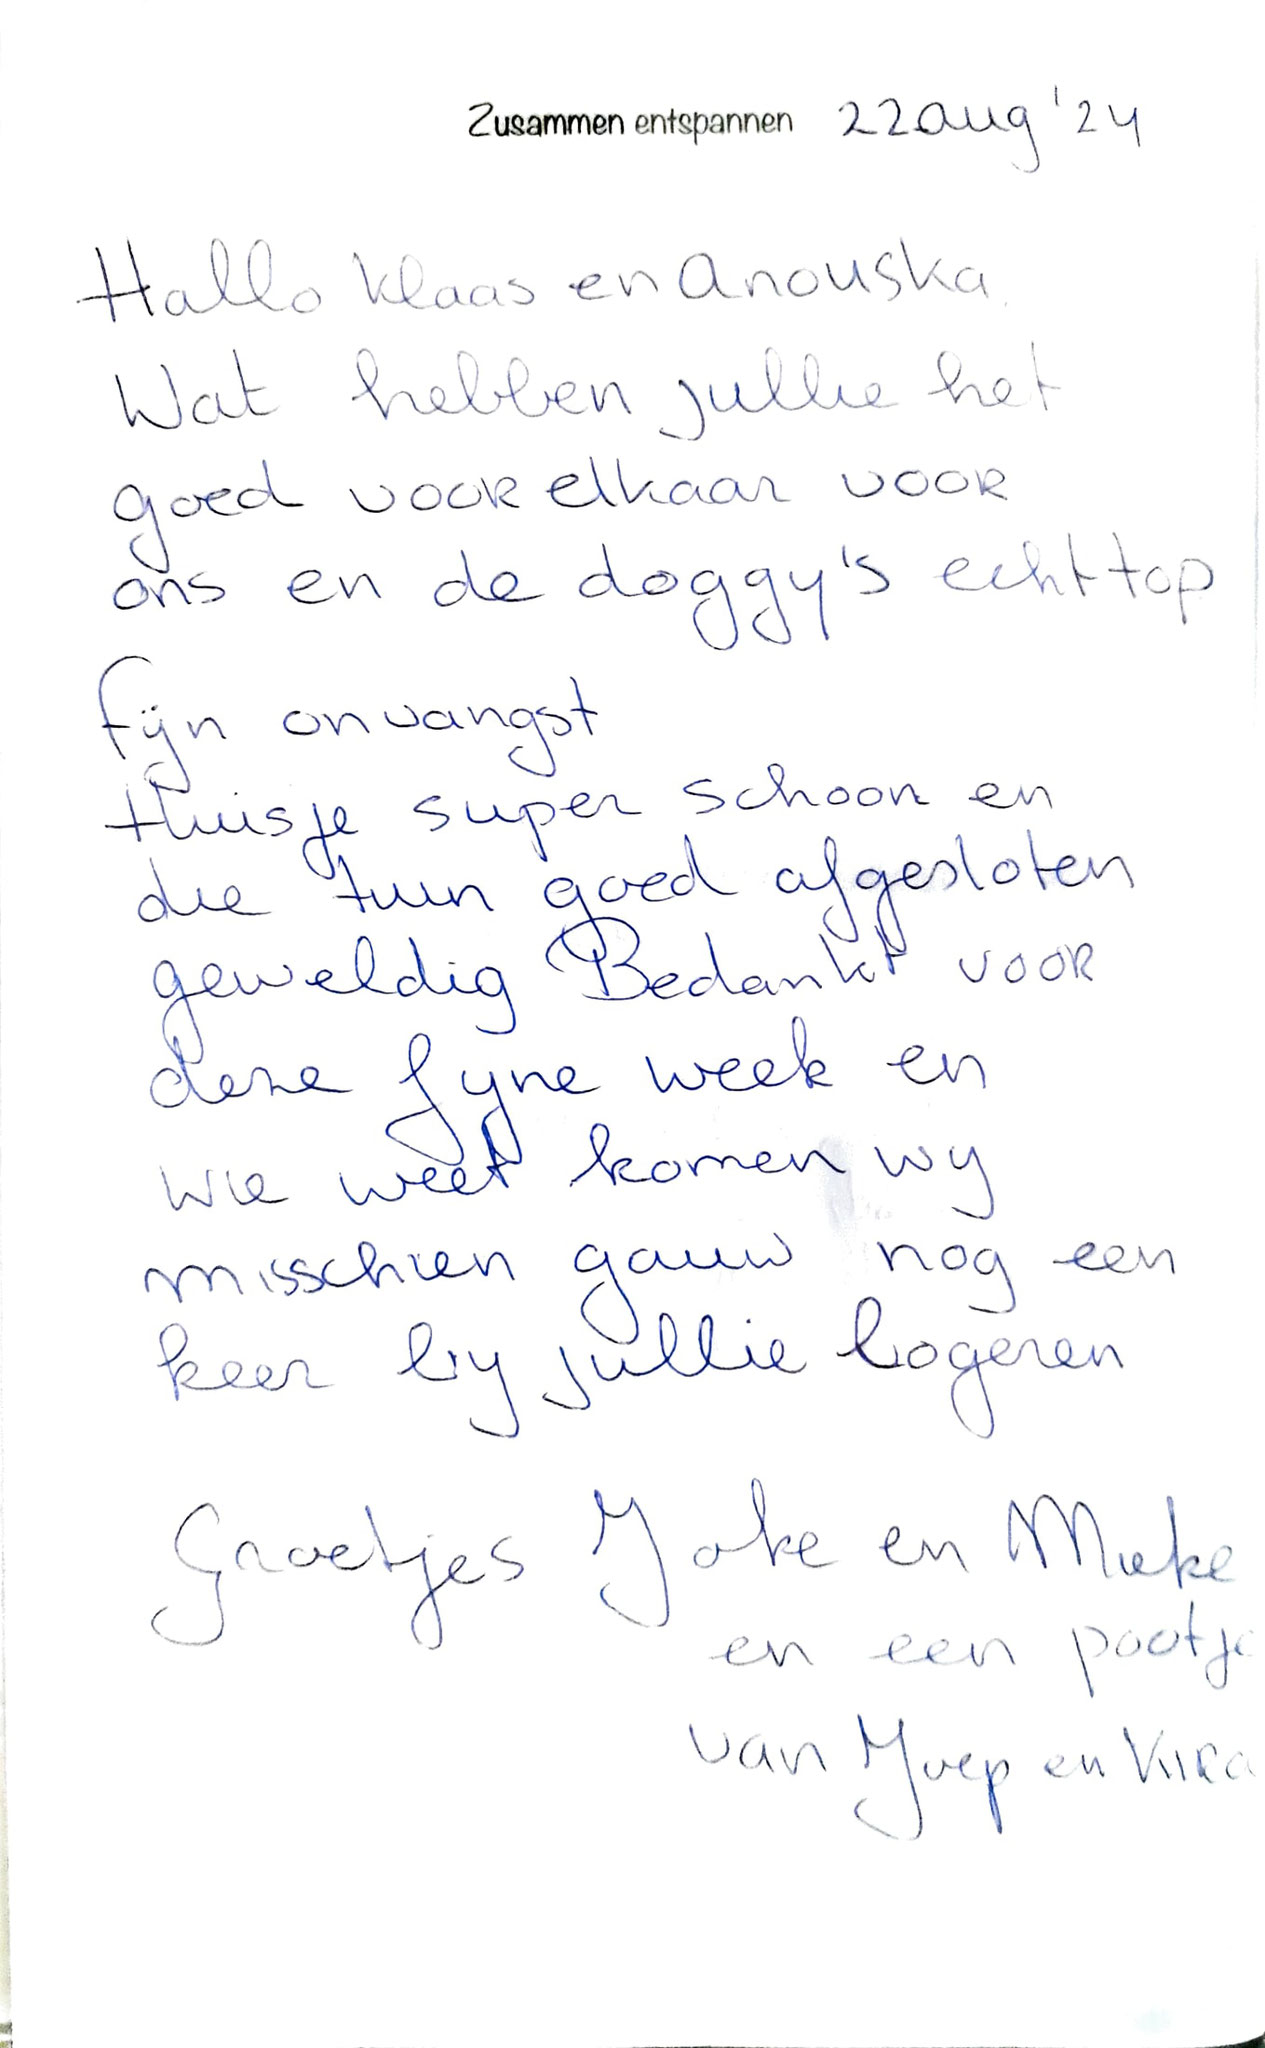 Zusammen entspannen 22 aug '24
Hallo Klaas en Anouska.
Wat hebben jullie het
goed voor elkaar voor
ons en de doggy's echt top
fijn onvangst
thuisje super schoon en
die tuin goed afgesloten
geweldig Bedankt voor
deze fyne week en
wie weet komen wy
misschien gauw nog een
keer by jullie logeren
Groetjes Joke en Mieke
en een pootje
van Joep en